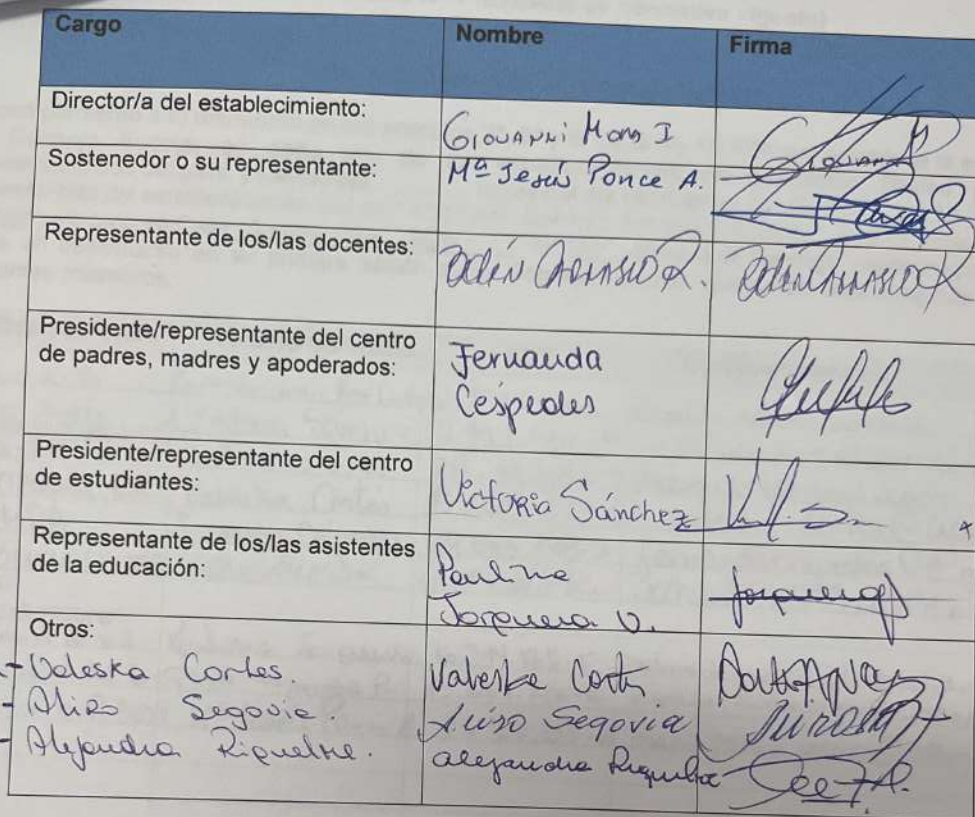 Cargo Nombre Firma
Director/a del establecimiento: Giovanni Mora I Giovanni M
Sostenedor o su representante: Mª Jesús Ponce A.
Representante de los/las docentes: Odlén Carrasco R. Odlén Carrasco R
Presidente/representante del centro
de padres, madres y apoderados:
Fernanda
Cespedes
Presidente/representante del centro
de estudiantes:
Victoria Sánchez
Representante de los/las asistentes
de la educación:
Paulina
Jorquera V.
Jorquera
Otros:
- Valeska Cortes. Valeska Cortes
- Aliro Segovia. Aliro Segovia
- Alejandra Riquelme. alejandra Riquelme